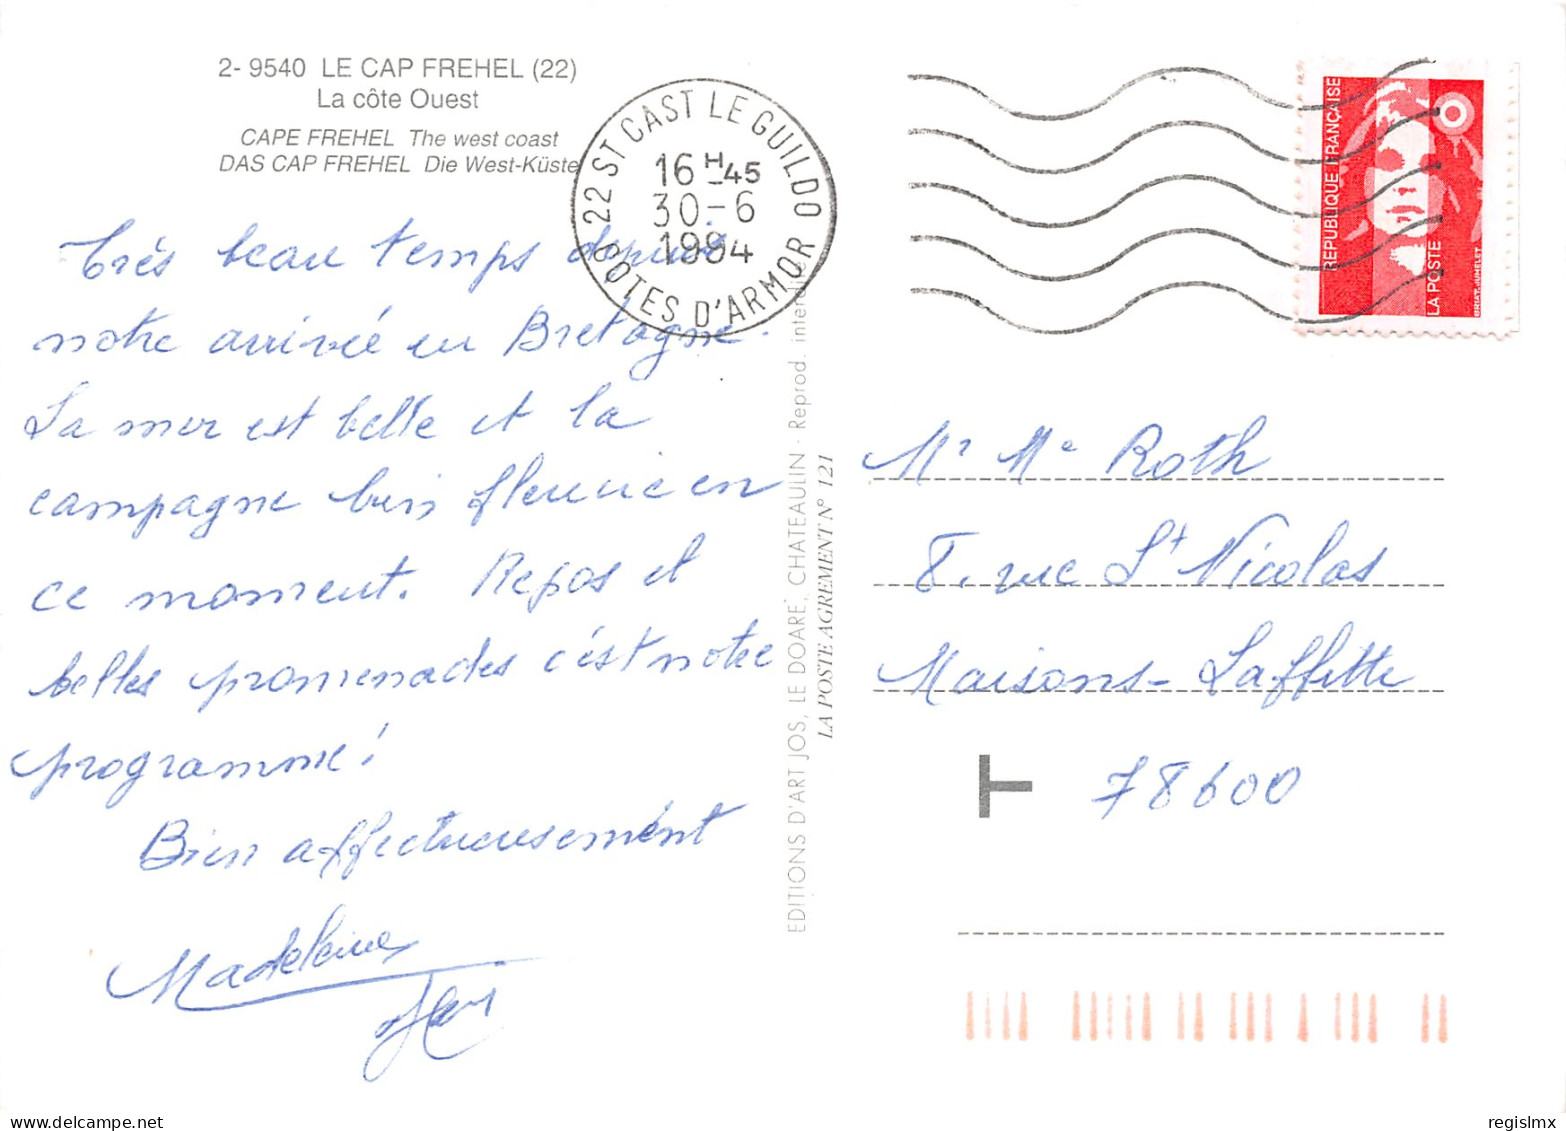 2- 9540 LE CAP FREHEL (22)
La côte Ouest
CAPE FREHEL The west coast
DAS CAP FREHEL Die West-Küste
22 ST CAST LE GUILDO
16 H 45
30-6
1994
COTES D'ARMOR
REPUBLIQUE FRANÇAISE
LA POSTE
BRIAT. JUMELET
Très beau temps depuis
notre arrivée en Bretagne.
La mer est belle et la
campagne bien fleurie en
ce moment. Repos et
belles promenades c'est notre
programme!
Bien affectueusement
Madeleine
EDITIONS D'ART JOS, LE DOARE, CHATEAULIN - Reprod. interdite
LA POSTE AGREMENT N° 121
Mr Me Roth
8. rue St Nicolas
Maisons-Laffitte
T 78600
regislmx